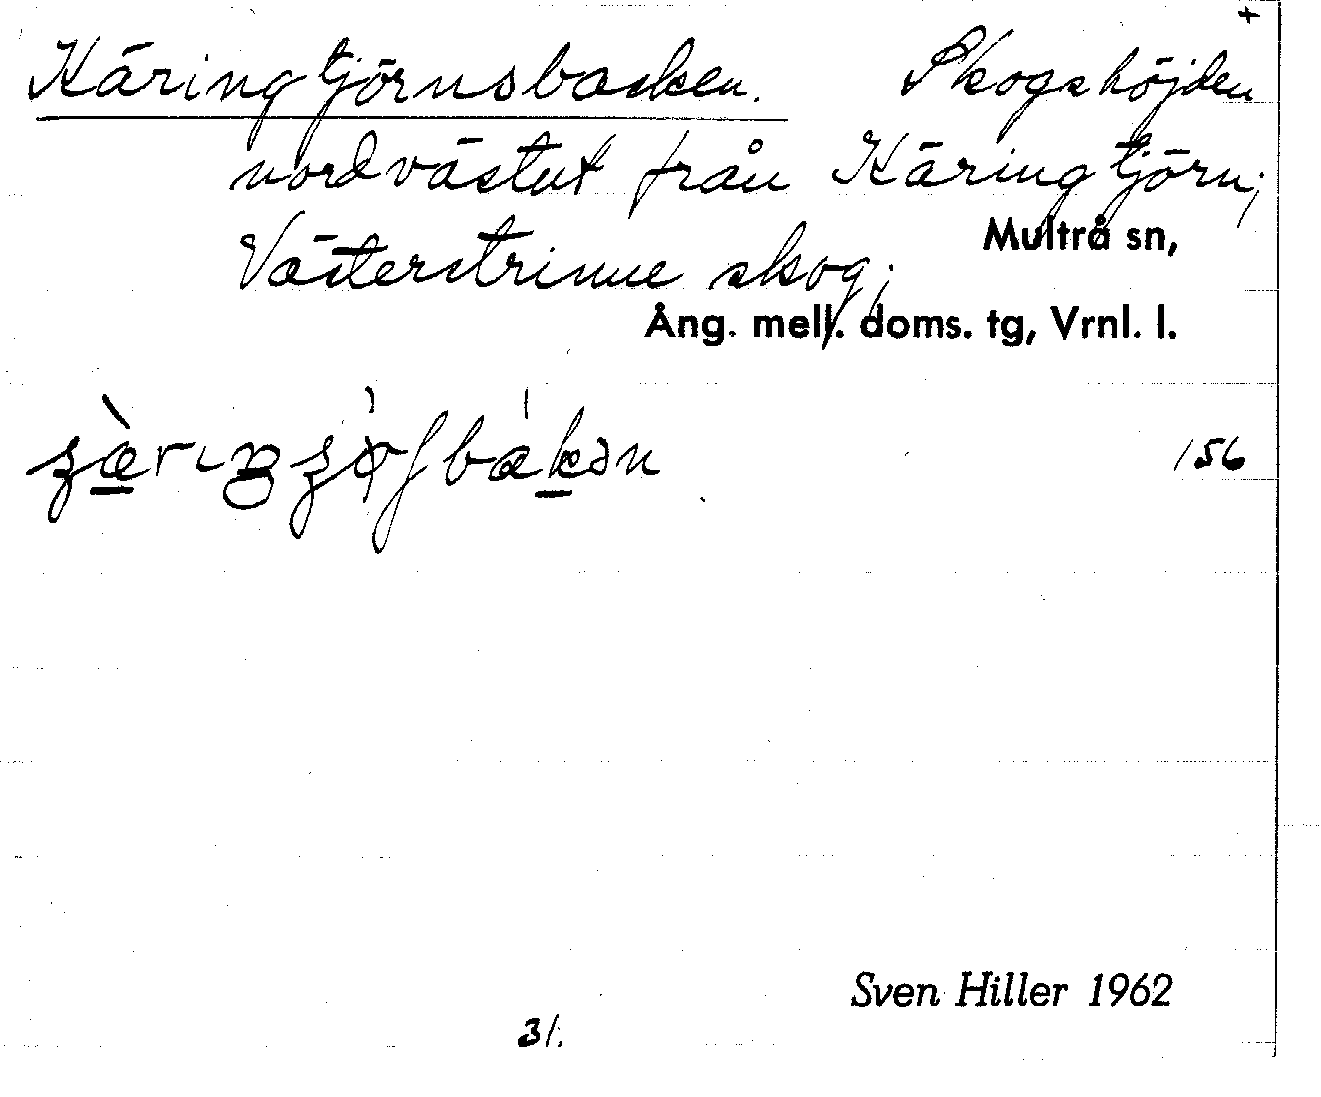 +
Käringtjörnsbacken. Skogshöjden
nordvästut från Käringtjörn;
Västerstrinne skog;
Multrå sn,
Ång. mell. doms. tg, Vrnl. l.
156
Sven Hiller 1962
31.